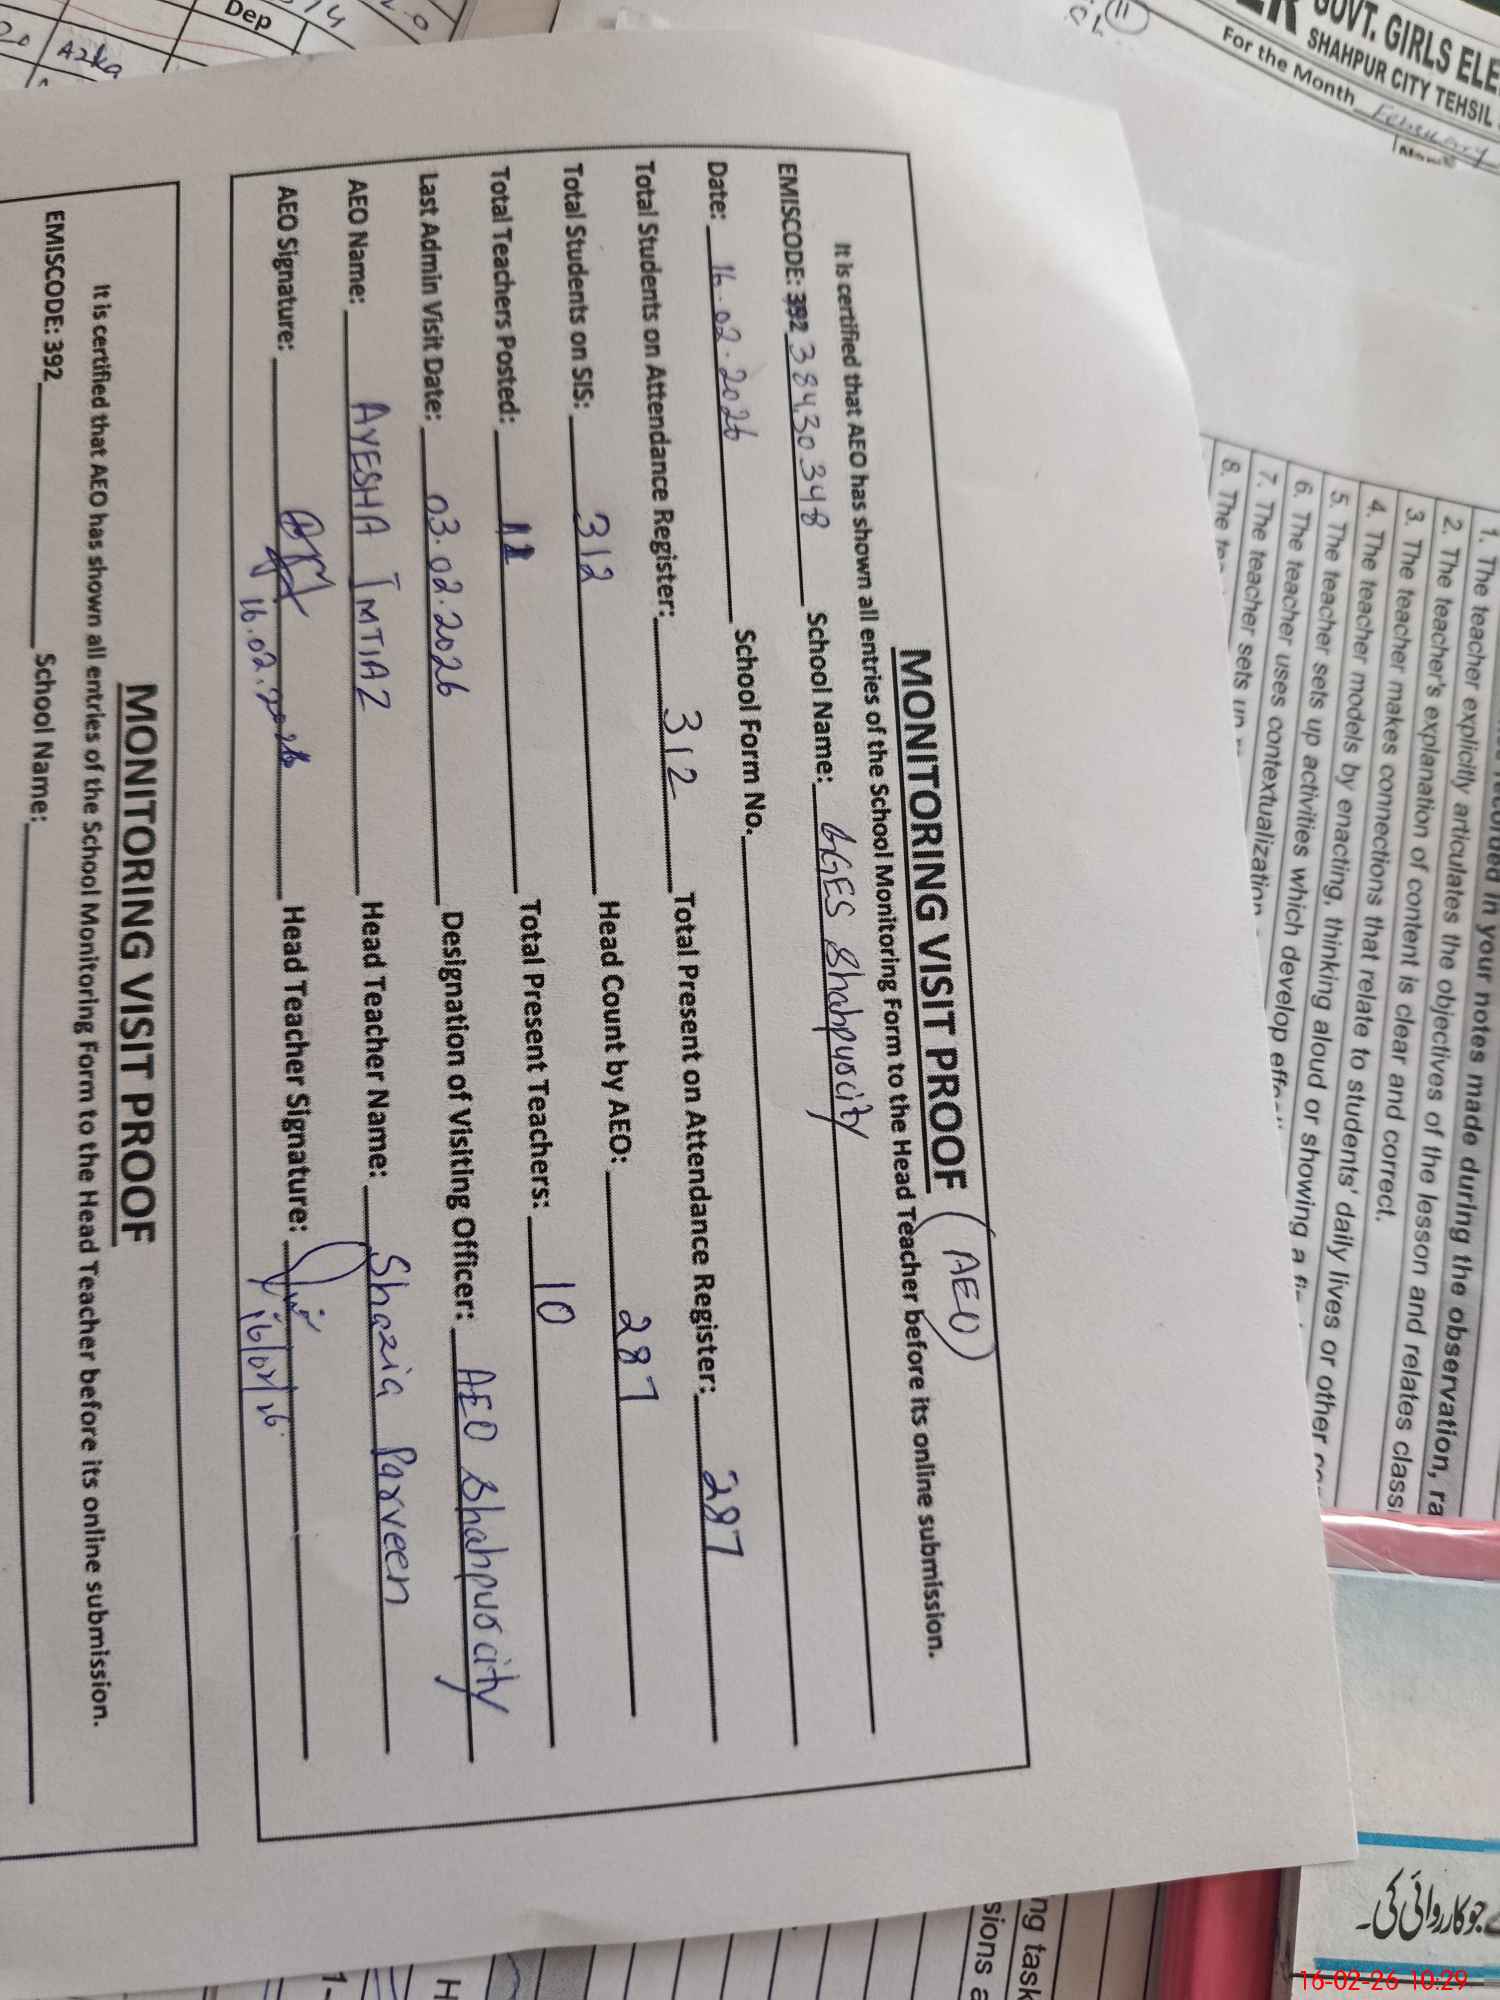 MONITORING VISIT PROOF (AEO)
It is certified that AEO has shown all entries of the School Monitoring Form to the Head Teacher before its online submission.
EMISCODE: 392 38430348 School Name: GGES Shahpur city
Date: 16.02.2026 School Form No.
Total Students on Attendance Register: 312 Total Present on Attendance Register: 287
Total Students on SIS: 312 Head Count by AEO: 287
Total Teachers Posted: 11 Total Present Teachers: 10
Last Admin Visit Date: 03.02.2026 Designation of Visiting Officer: AEO Shahpur city
AEO Name: AYESHA IMTIAZ Head Teacher Name: Shazia Parveen
AEO Signature: 16.02.2026 Head Teacher Signature: 16/02/26
MONITORING VISIT PROOF
It is certified that AEO has shown all entries of the School Monitoring Form to the Head Teacher before its online submission.
EMISCODE: 392 School Name:
GOVT. GIRLS ELE
SHAHPUR CITY TEHSIL
For the Month February
11
in your notes made during the observation, ra
1. The teacher explicitly articulates the objectives of the lesson and relates class
2. The teacher's explanation of content is clear and correct.
3. The teacher makes connections that relate to students' daily lives or other
4. The teacher models by enacting, thinking aloud or showing a
5. The teacher sets up activities which develop
6. The teacher uses contextualization
7. The teacher sets up
8. The
Dep
20 Azka
ng task
sions a
H
1-
جو کارروائی کی۔
16-02-26 10:29